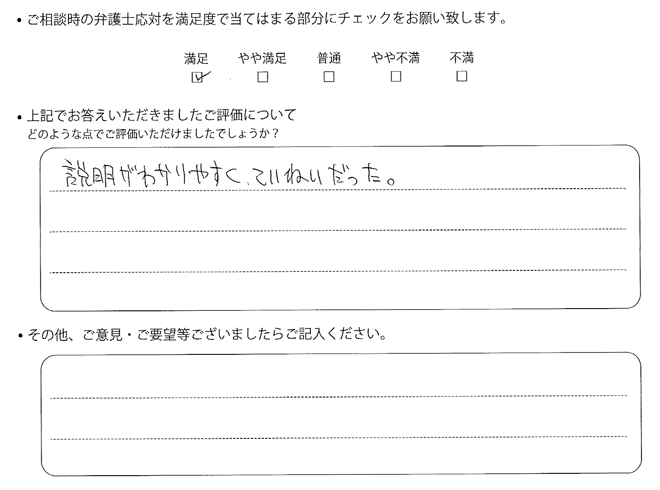 ・ご相談時の弁護士応対を満足度で当てはまる部分にチェックをお願い致します。
満足 やや満足 普通 やや不満 不満
☑ □ □ □ □
・上記でお答えいただきましたご評価について
どのような点でご評価いただけましたでしょうか？
説明がわかりやすく、ていねいだった。
・その他、ご意見・ご要望等ございましたらご記入ください。